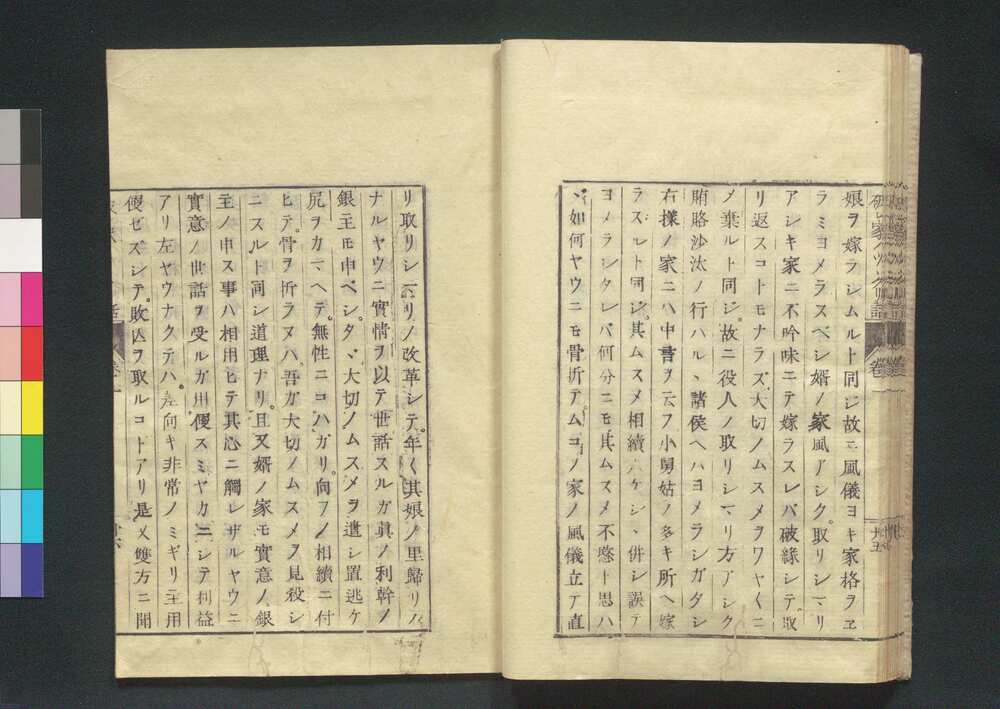 娘ヲ嫁ヲシムルト同ジ故ニ風儀ヨキ家格ヲヱ
ラミヨメラスベシ婿ノ家風アシク取リシマリ
アシキ家ニ不吟味ニテ嫁ラスレバ破縁シテ取
リ返スコトモナラズ大切ノムスメヲワヤくニ
メ棄ルト同ジ故ニ役人ノ取リシマリ方アシク
賄賂沙汰ノ行ハルヽ諸侯ヘハヨメラシガタシ
右様ノ家ニハ中書ヲ云フ小舅姑ノ多キ所ヘ嫁
ラスルト同ジ其ムスメ相續六ケシヽ併シ誤テ
ヨメラシタレバ何分ニモ其ムスメ不愍ト思ハ
ヾ如何ヤウニモ骨折アムコノ家ノ風儀立テ直
卅五
リ取リシマリノ改革シテ年く其娘ノ里歸リノ
ナルヤウニ實情ヲ以テ世話スルガ眞ノ利幹ノ
銀主モ申ベシタヾ大切ノムスメヲ遣シ置逃ケ
尻ヲカマヘテ無性ニコハガリ向フノ相續ニ付
ヒテ骨ヲ折ラヌハ吾ガ大切ノムスメヲ見殺シ
ニスルト同シ道理ナリ且又婿ノ家モ實意ノ銀
主ノ申ス事ハ相用ヒテ其心ニ觸レザルヤウニ
實意ノ世話ヲ受ルガ用便スミヤカニシテ利益
アリ左ヤウナクテハ差向キ非常ノミギリ至用
便ゼズシテ敗亡ヲ取ルコトアリ是メ雙方ニ開